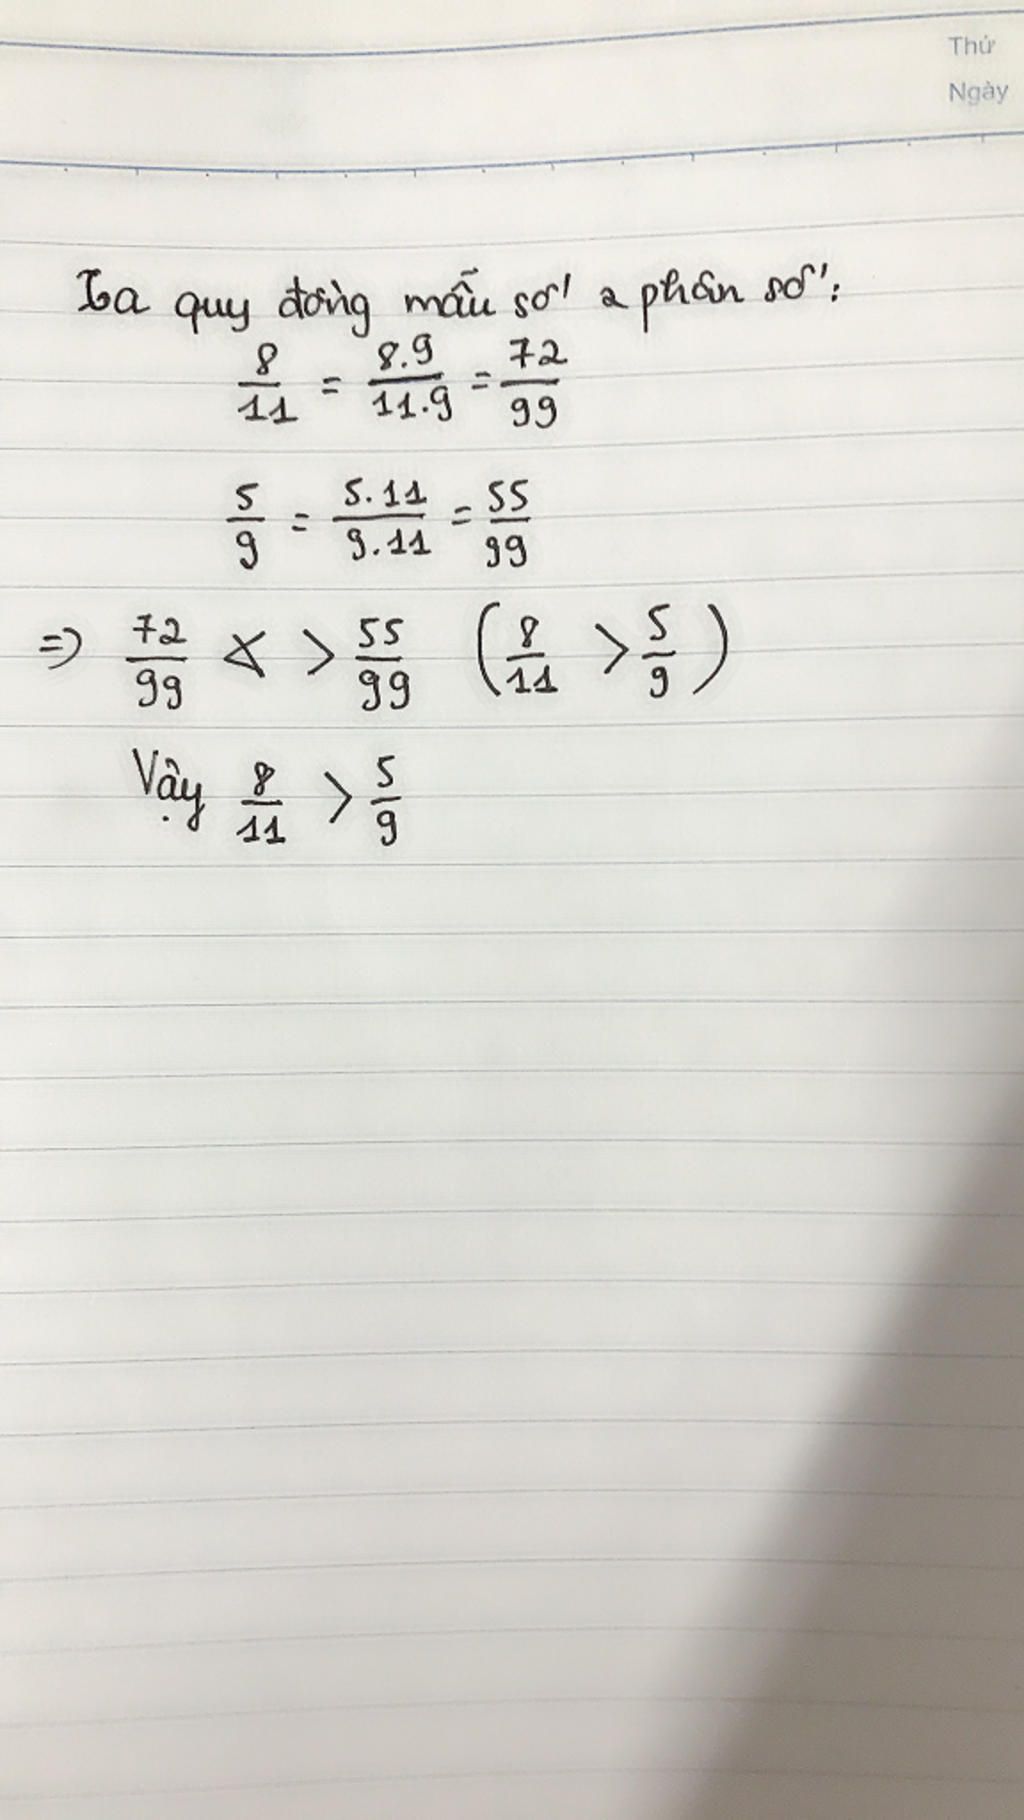 Thứ
Ngày
Ta quy đồng mẫu số 2 phân số:
8/11 = 8.9/11.9 = 72/99
5/9 = 5.11/9.11 = 55/99
=> 72/99 > 55/99 (8/11 > 5/9)
Vậy 8/11 > 5/9